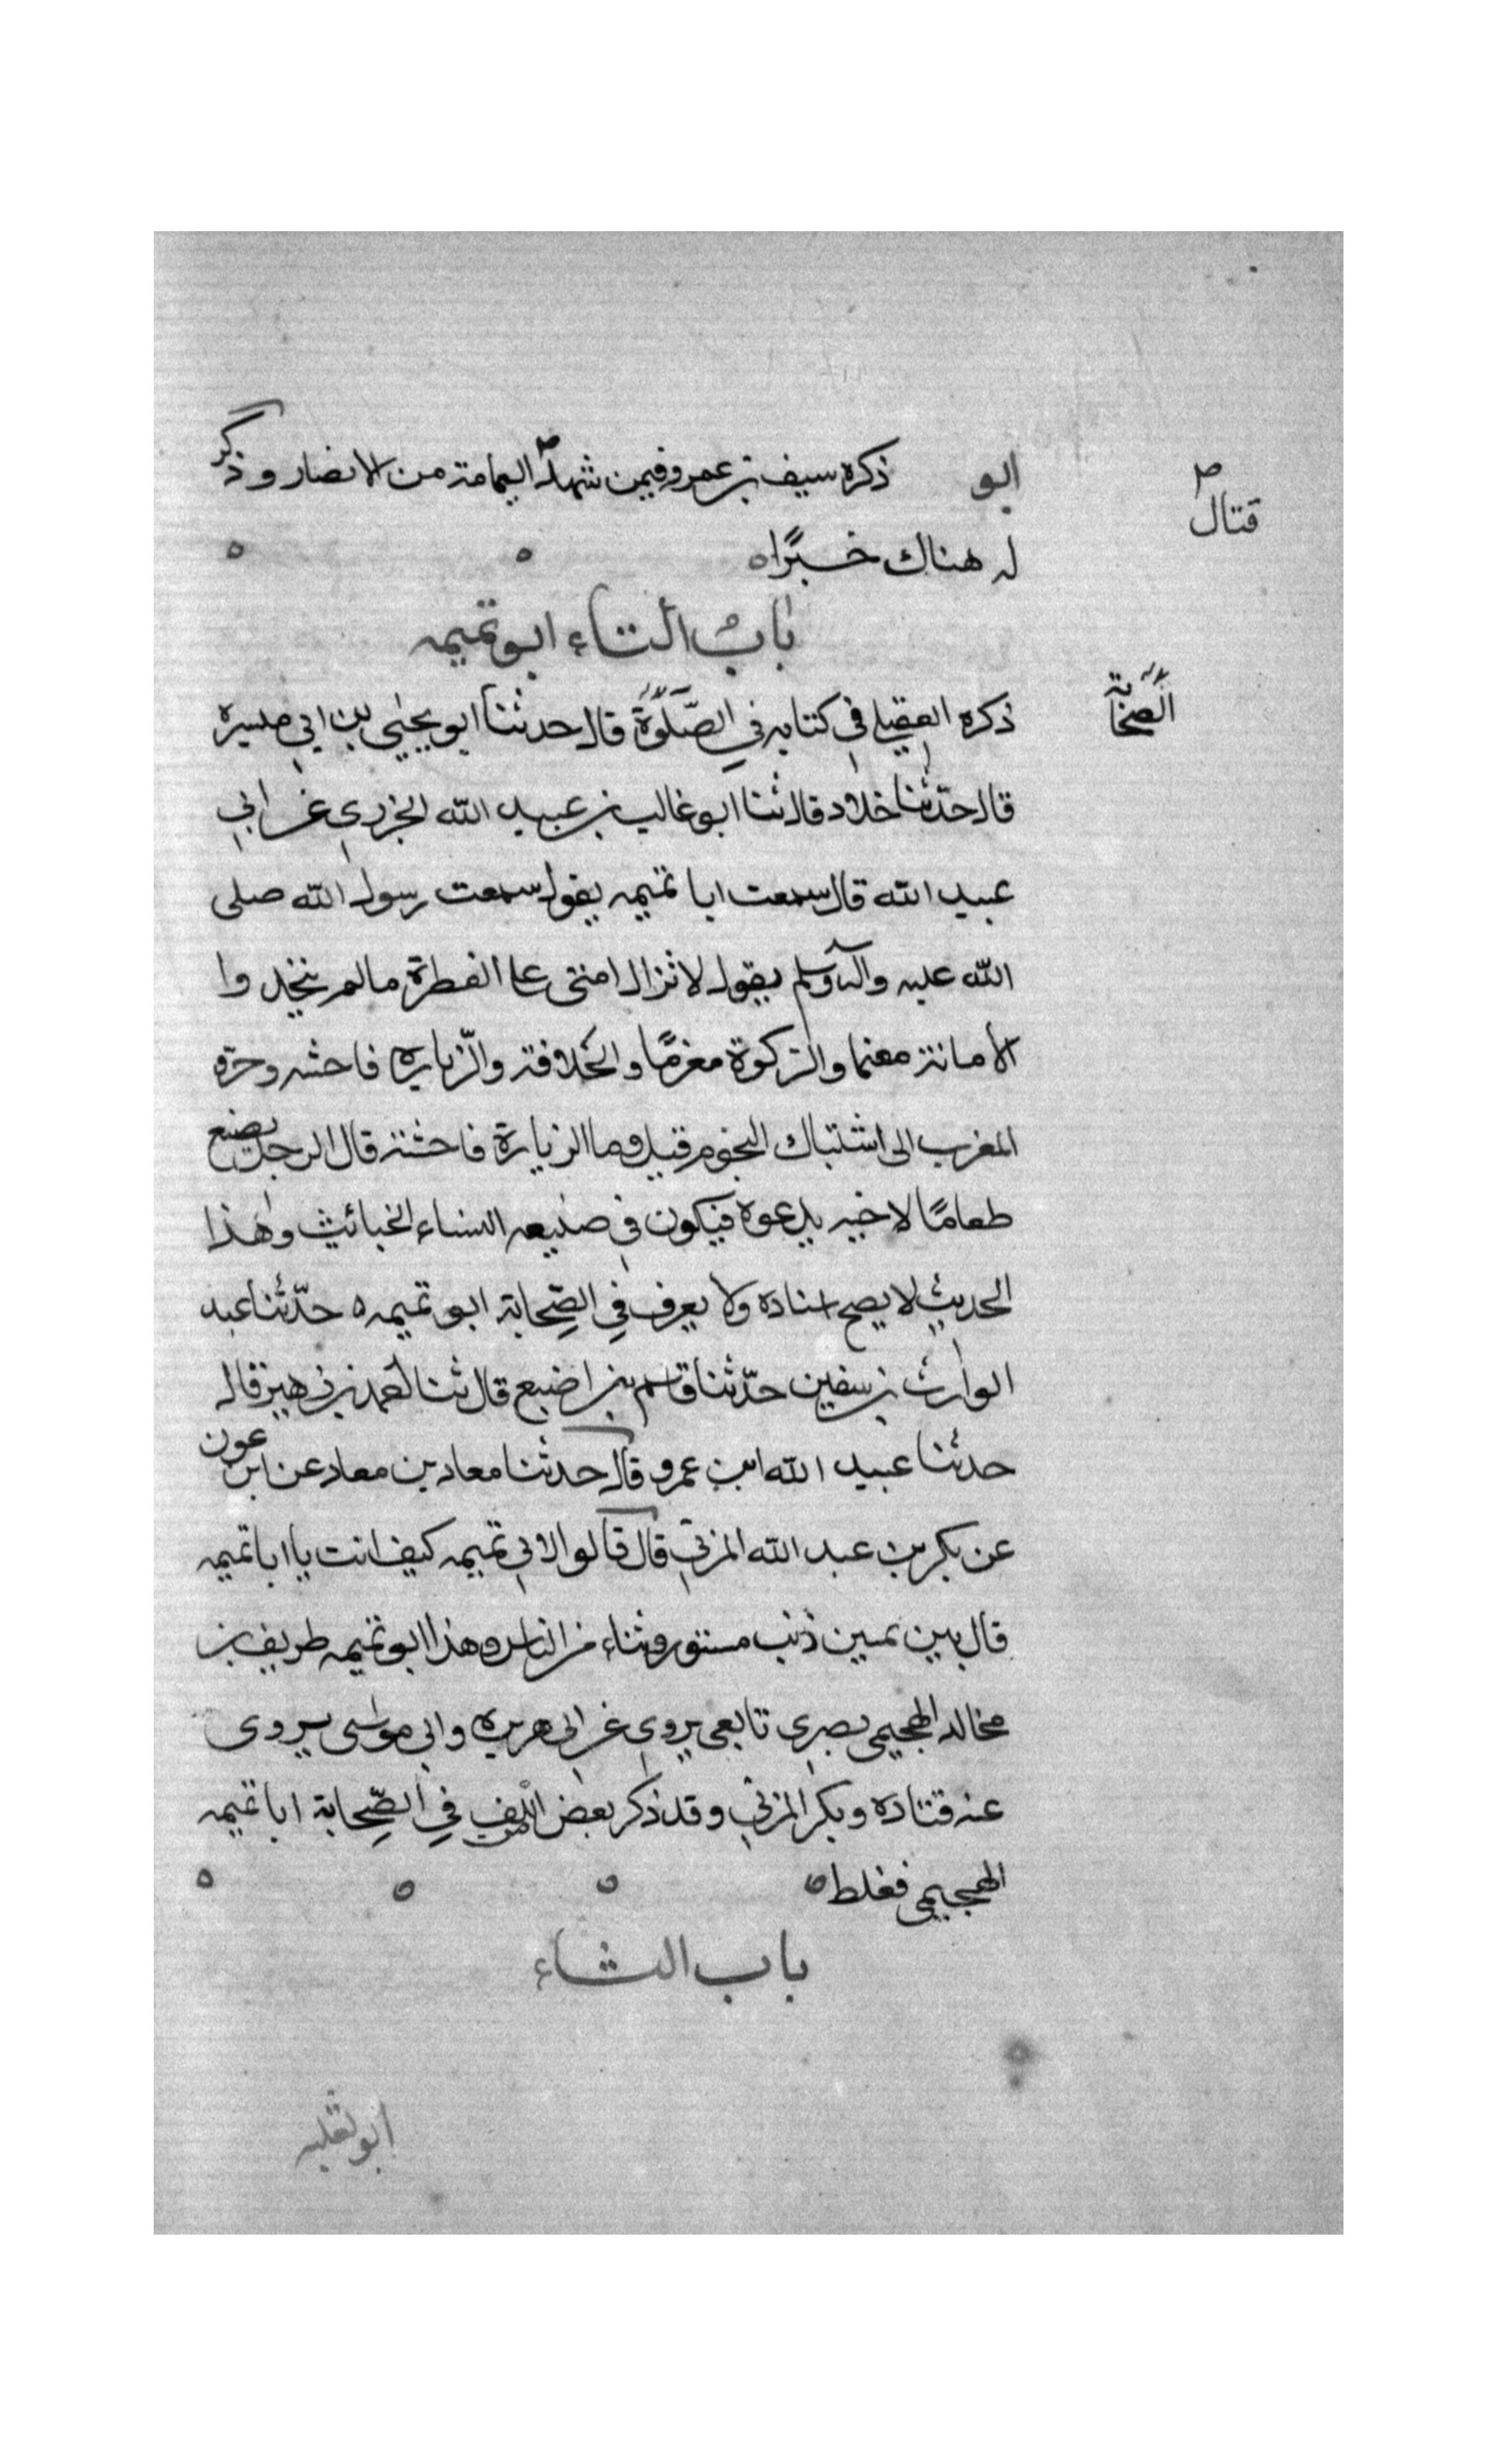 ابو ذكره سيف بن عمرو فيمن شهد اليمامة من الانصار وذكر
قتال
له هناك خبرًا
باب التاء ابو تميمه
ذكره العقيلي في كتابه في الصَّلٰوة قال حدثنا ابو يحيى بن ابي مسيرة
الصحابة
قال حدّثنا خلاد قال ثنا ابو غالب بن عبيد الله الجزري عن ابي
عبيد الله قال سمعت ابا تميمه يقول سمعت رسول الله صلى
الله عليه وآله وسلم يقول لا تزال امتى على الفطرة مالم يتخذوا
الأمانة مغنما والزكوة مغرمًا والخلافة والزّياره فاحشه وحرّه
المغرب الى اشتباك النجوم قيل وما الزيارة فاحشة قال الرجل يصنع
طعامًا لاخيه يدعوه فيكون في صنيعه النساء الخبائث وهذا
الحديث لا يصح اسناده ولا يعرف في الصّحابة ابو تميمه حدّثنا عبد
الوارث بن سفين حدّثنا قاسم بن اصبغ قال ثنا احمد بن زهير قال
حدثنا عبيد الله ابن عمرو قال حدثنا معاد بن معاد عن ابن عون
عن بكر بن عبد الله المزني قال قالوا لابي تميمه كيف انت يا ابا تميمه
قال بين نمسين ذنب مستور وثناء من الناس وهذا ابو تميمه طريف بن
مخالد الهجيمى بصرى تابعى يروى عن ابى هريره وابى موسى يروى
عنه قتاده وبكر المزني وقد ذكر بعض في الصّحابة ابا تميمه
الهجيمى فغلط
باب الثاء
ابو ثعلبه